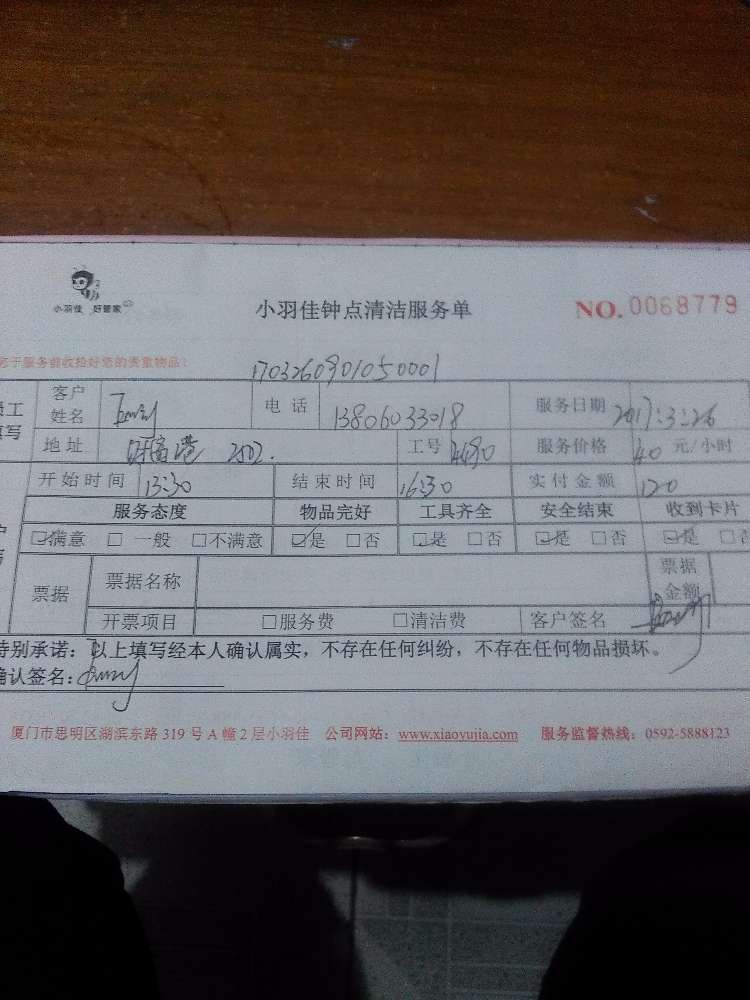 小羽佳 好管家
小羽佳钟点清洁服务单 NO. 0068779
于服务前收拾好您的贵重物品！
1703260901050001
员工填写 客户姓名 电话 13806033018 服务日期 2017:3:26
地址 2002. 工号 4690 服务价格 40 元/小时
开始时间 13:30 结束时间 16:30 实付金额 120
服务态度 物品完好 工具齐全 安全结束 收到卡片
☑满意 □一般 □不满意 ☑是 □否 ☑是 □否 ☑是 □否 ☑是 □否
票据 票据名称 票据金额
开票项目 □服务费 □清洁费 客户签名
特别承诺：以上填写经本人确认属实，不存在任何纠纷，不存在任何物品损坏。
确认签名：
厦门市思明区湖滨东路319号A幢2层小羽佳 公司网站：www.xiaoyujia.com 服务监督热线：0592-5888123